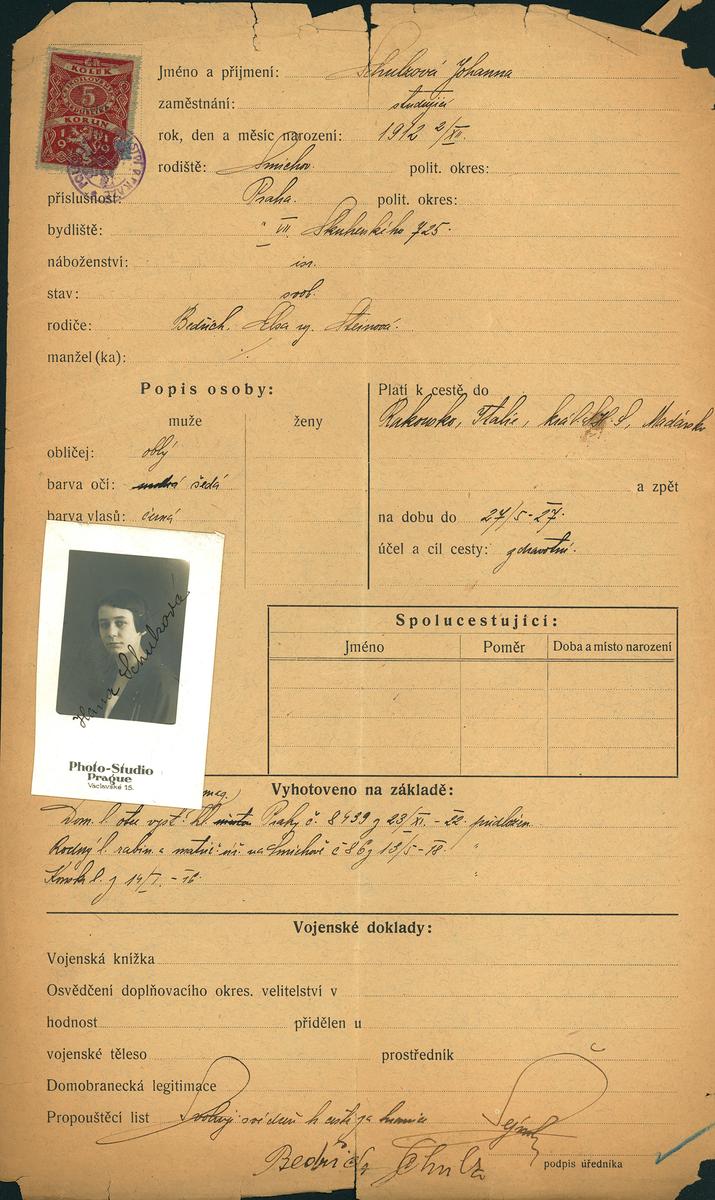 KOLEK
5
KORUN
1919
Jméno a příjmení: Schulzová Johanna
zaměstnání: studující
rok, den a měsíc narození: 1912 2/XII.
rodiště: Smíchov. polit. okres:
příslušnost: Praha. polit. okres:
bydliště: " VII. 725.
náboženství: isr.
stav: svob.
rodiče: Bedřich. Elsa r. Steinová.
manžel(ka):
Popis osoby:
muže ženy
obličej: oblý
barva očí: modrá šedá
barva vlasů: černá
Platí k cestě do
Rakousko, Italie, král. S.H.S, Maďarsko
a zpět
na dobu do 27/5-27.
účel a cíl cesty: zdravotní.
Hana Schulzová
Photo-Studio
Prague
Václavské 15.
Spolucestující:
Jméno Poměr Doba a místo narození
Vyhotoveno na základě:
mag.
Dom. l. obce vyst. hl. města Prahy č. 8439 z 23/XI.-22. předložen
Rodný l. rabín. a matrič. úř. na Smíchově č 86 z 13/5-18. "
l. z 14/I.-26. "
Vojenské doklady:
Vojenská knížka
Osvědčení doplňovacího okres. velitelství v
hodnost přidělen u
vojenské těleso prostředník
Domobranecká legitimace
Propouštěcí list
Svoluji své dceři k cestě za hranice
Bedřich Schulz
podpis úředníka